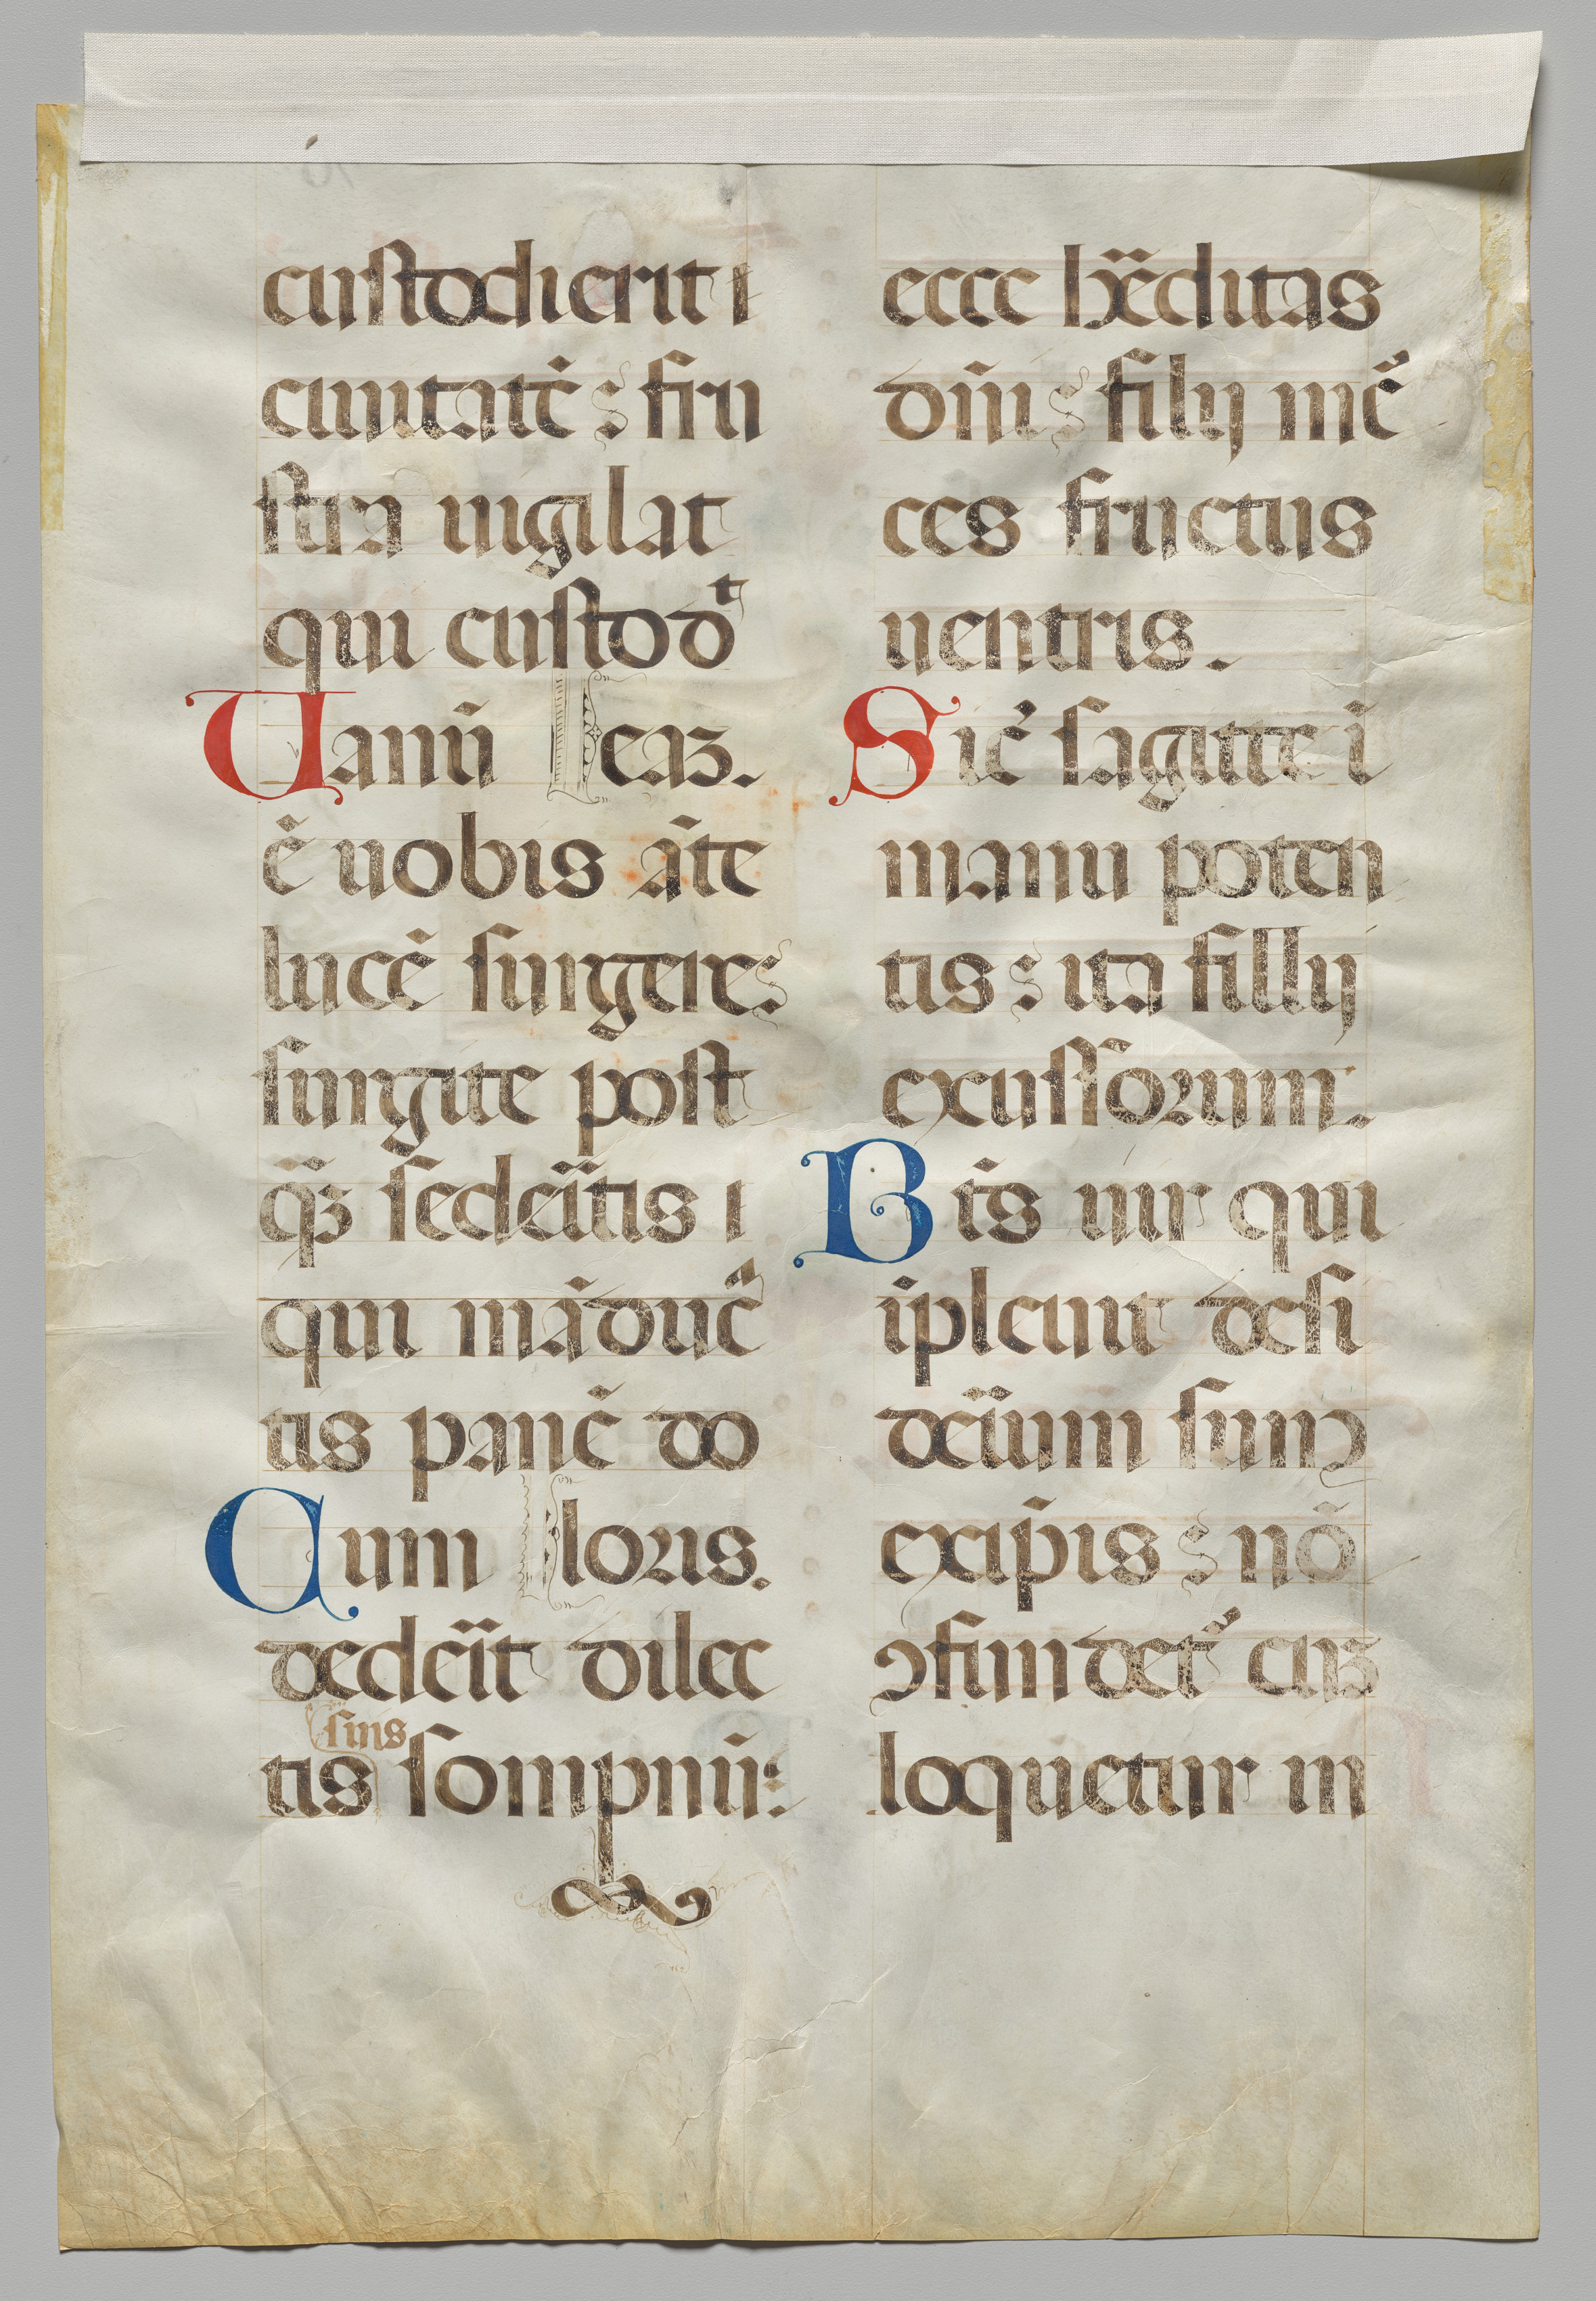 custodierit i
ciuitatē : fru
stra uigilat
qui custodᵗ
Uanū eaʒ.
ē uobis āte
lucē surgere:
surgite post
q̄ʒ sedeītis i
qui māducᵃ̄
tis panē do
Cum loris.
dedeīt dilec
suis
tis sompnū:
ecce hēditas
dn̄i : filij m̄c
ces fructus
uentris.
Sic̄ sagitte ī
manu poten
tis : ita fillij
excussorum.
Bt̄s uir qui
īpleuit desi
deīium suuꝫ
ex ip̄is : nō
ꝯfundet᷑ cuʒ
loquetur in